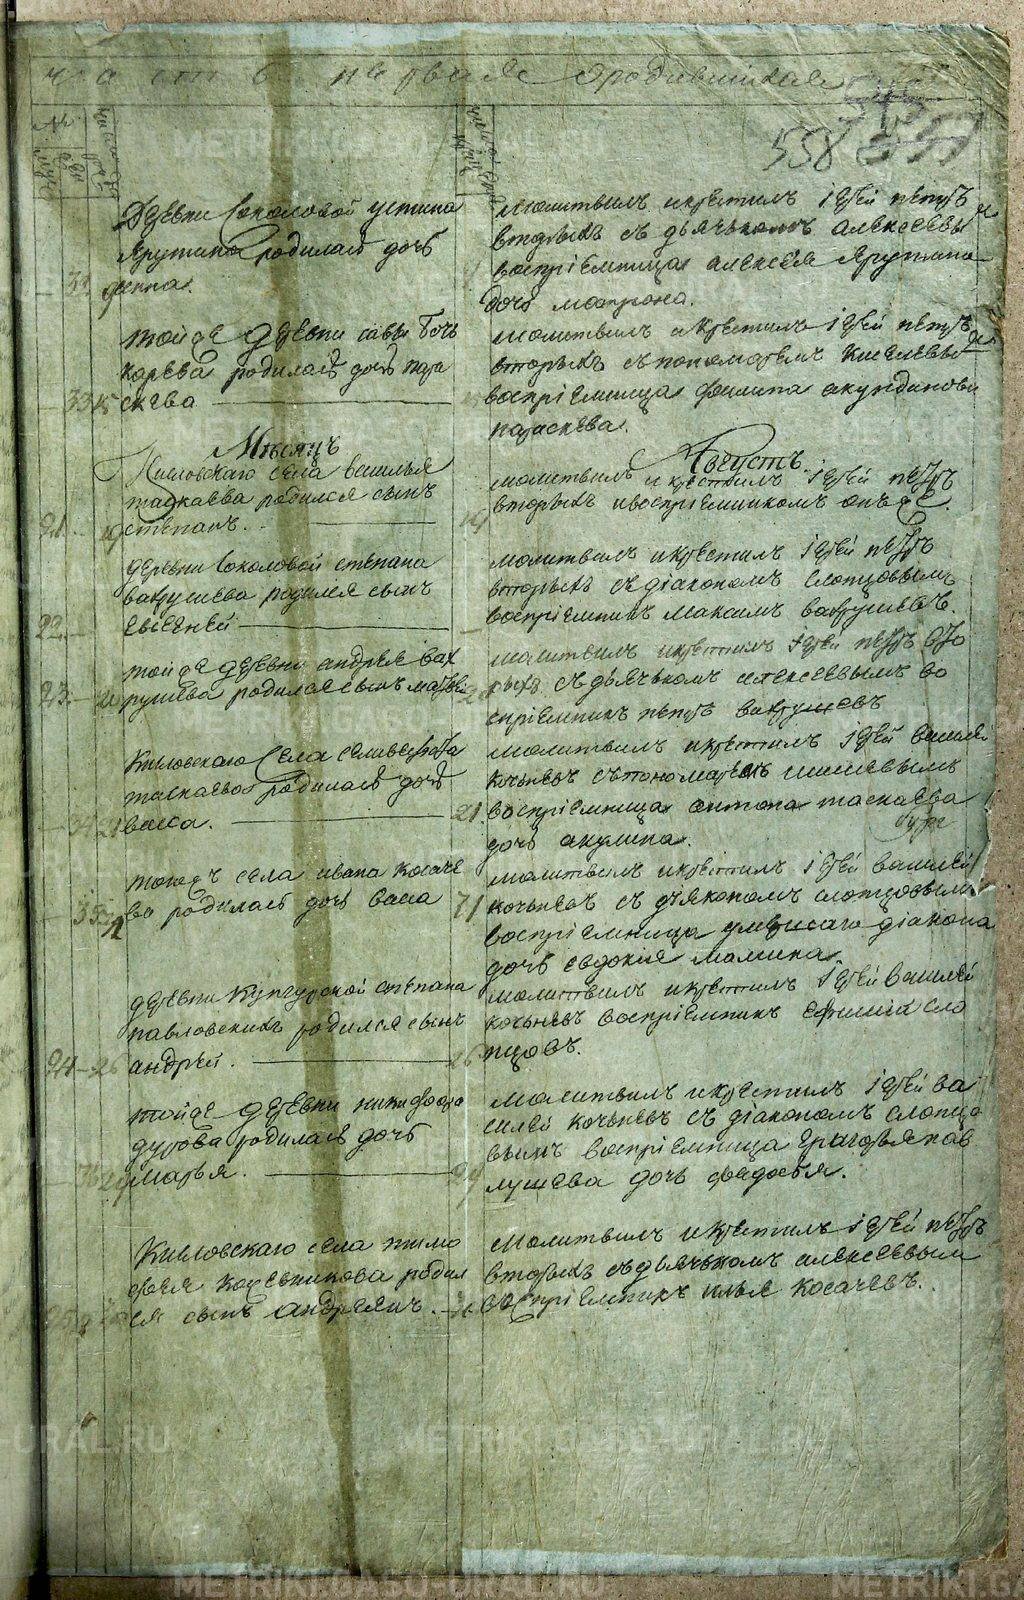 часть первая о родившихся
558
деревни Соколовой устина
Ярутина родилась дочь
анна.
молитвилъ икрестилъ іерей петръ
вторыхъ съ дьячькомъ алексеевы
воспріемница алексея Ярутина
дочь матрона.
33 15
тойже деревни савы Боч
карева родилась дочь пара
скева
молитвилъ икрестилъ іерей петръ
вторыхъ съпономаремъ киселевы
воспріемница филипа акундинова
параскева.
Мѣсяцъ
Августъ.
21 19
Кисловскаго села василья
таскаева родился сынъ
степанъ.
19
молитвилъ икрестилъ іерей петръ
вторыхъ ивоспріемникомъ онъже.
22
деревни Соколовой степана
вахрушева родился сынъ
Евгеней
молитвилъ икрестилъ іерей петръ
вторыхъ съ діакономъ слопцовымъ
воспріемникъ максимъ вахрушевъ.
23 21
тойже деревни андрея вах
рушева родился сынъ матвей
молитвилъ икрестилъ іерей петръ вто
рыхъ съдьячькомъ алексеевымъ во
спріемникъ петръ вахрушевъ
34 21
Кисловскаго Села селиверста
таскаева родилась дочь
васса.
21
молитвилъ икрестилъ іерей василей
кочьневъ съпономаремъ киселевымъ
воспріемница антона таскаева
дочь акулина.
35 21
тогожъ села ивана косаче
ва родилась дочь васса
21
молитвилъ икрестилъ іерей василей
кочьневъ съ діякономъ слопцовымъ
воспріемница умершаго діакона
дочь евдокия мамина
24 26
деревни Кунгурской степана
павловскихъ родился сынъ
андрей.
26
молитвилъ икрестилъ іерей василей
кочьневъ воспріемникъ ефимий сло
пцовъ.
36 29
тойже деревни никифора
дурова родилась дочь
марья.
29
молитвилъ икрестилъ іерей ва
силей кочьневъ съ діакономъ слопцо
вымъ воспріемница григорья пав
лушева дочь федосья.
Кисловскаго села тимо
фея кожевникова родил
ся сынъ андреянъ.
молитвилъ икрестилъ іерей петръ
вторыхъ съдьячькомъ алексеевым
воспріемникъ илья косачевъ.
METRIKI.GASO-URAL.RU